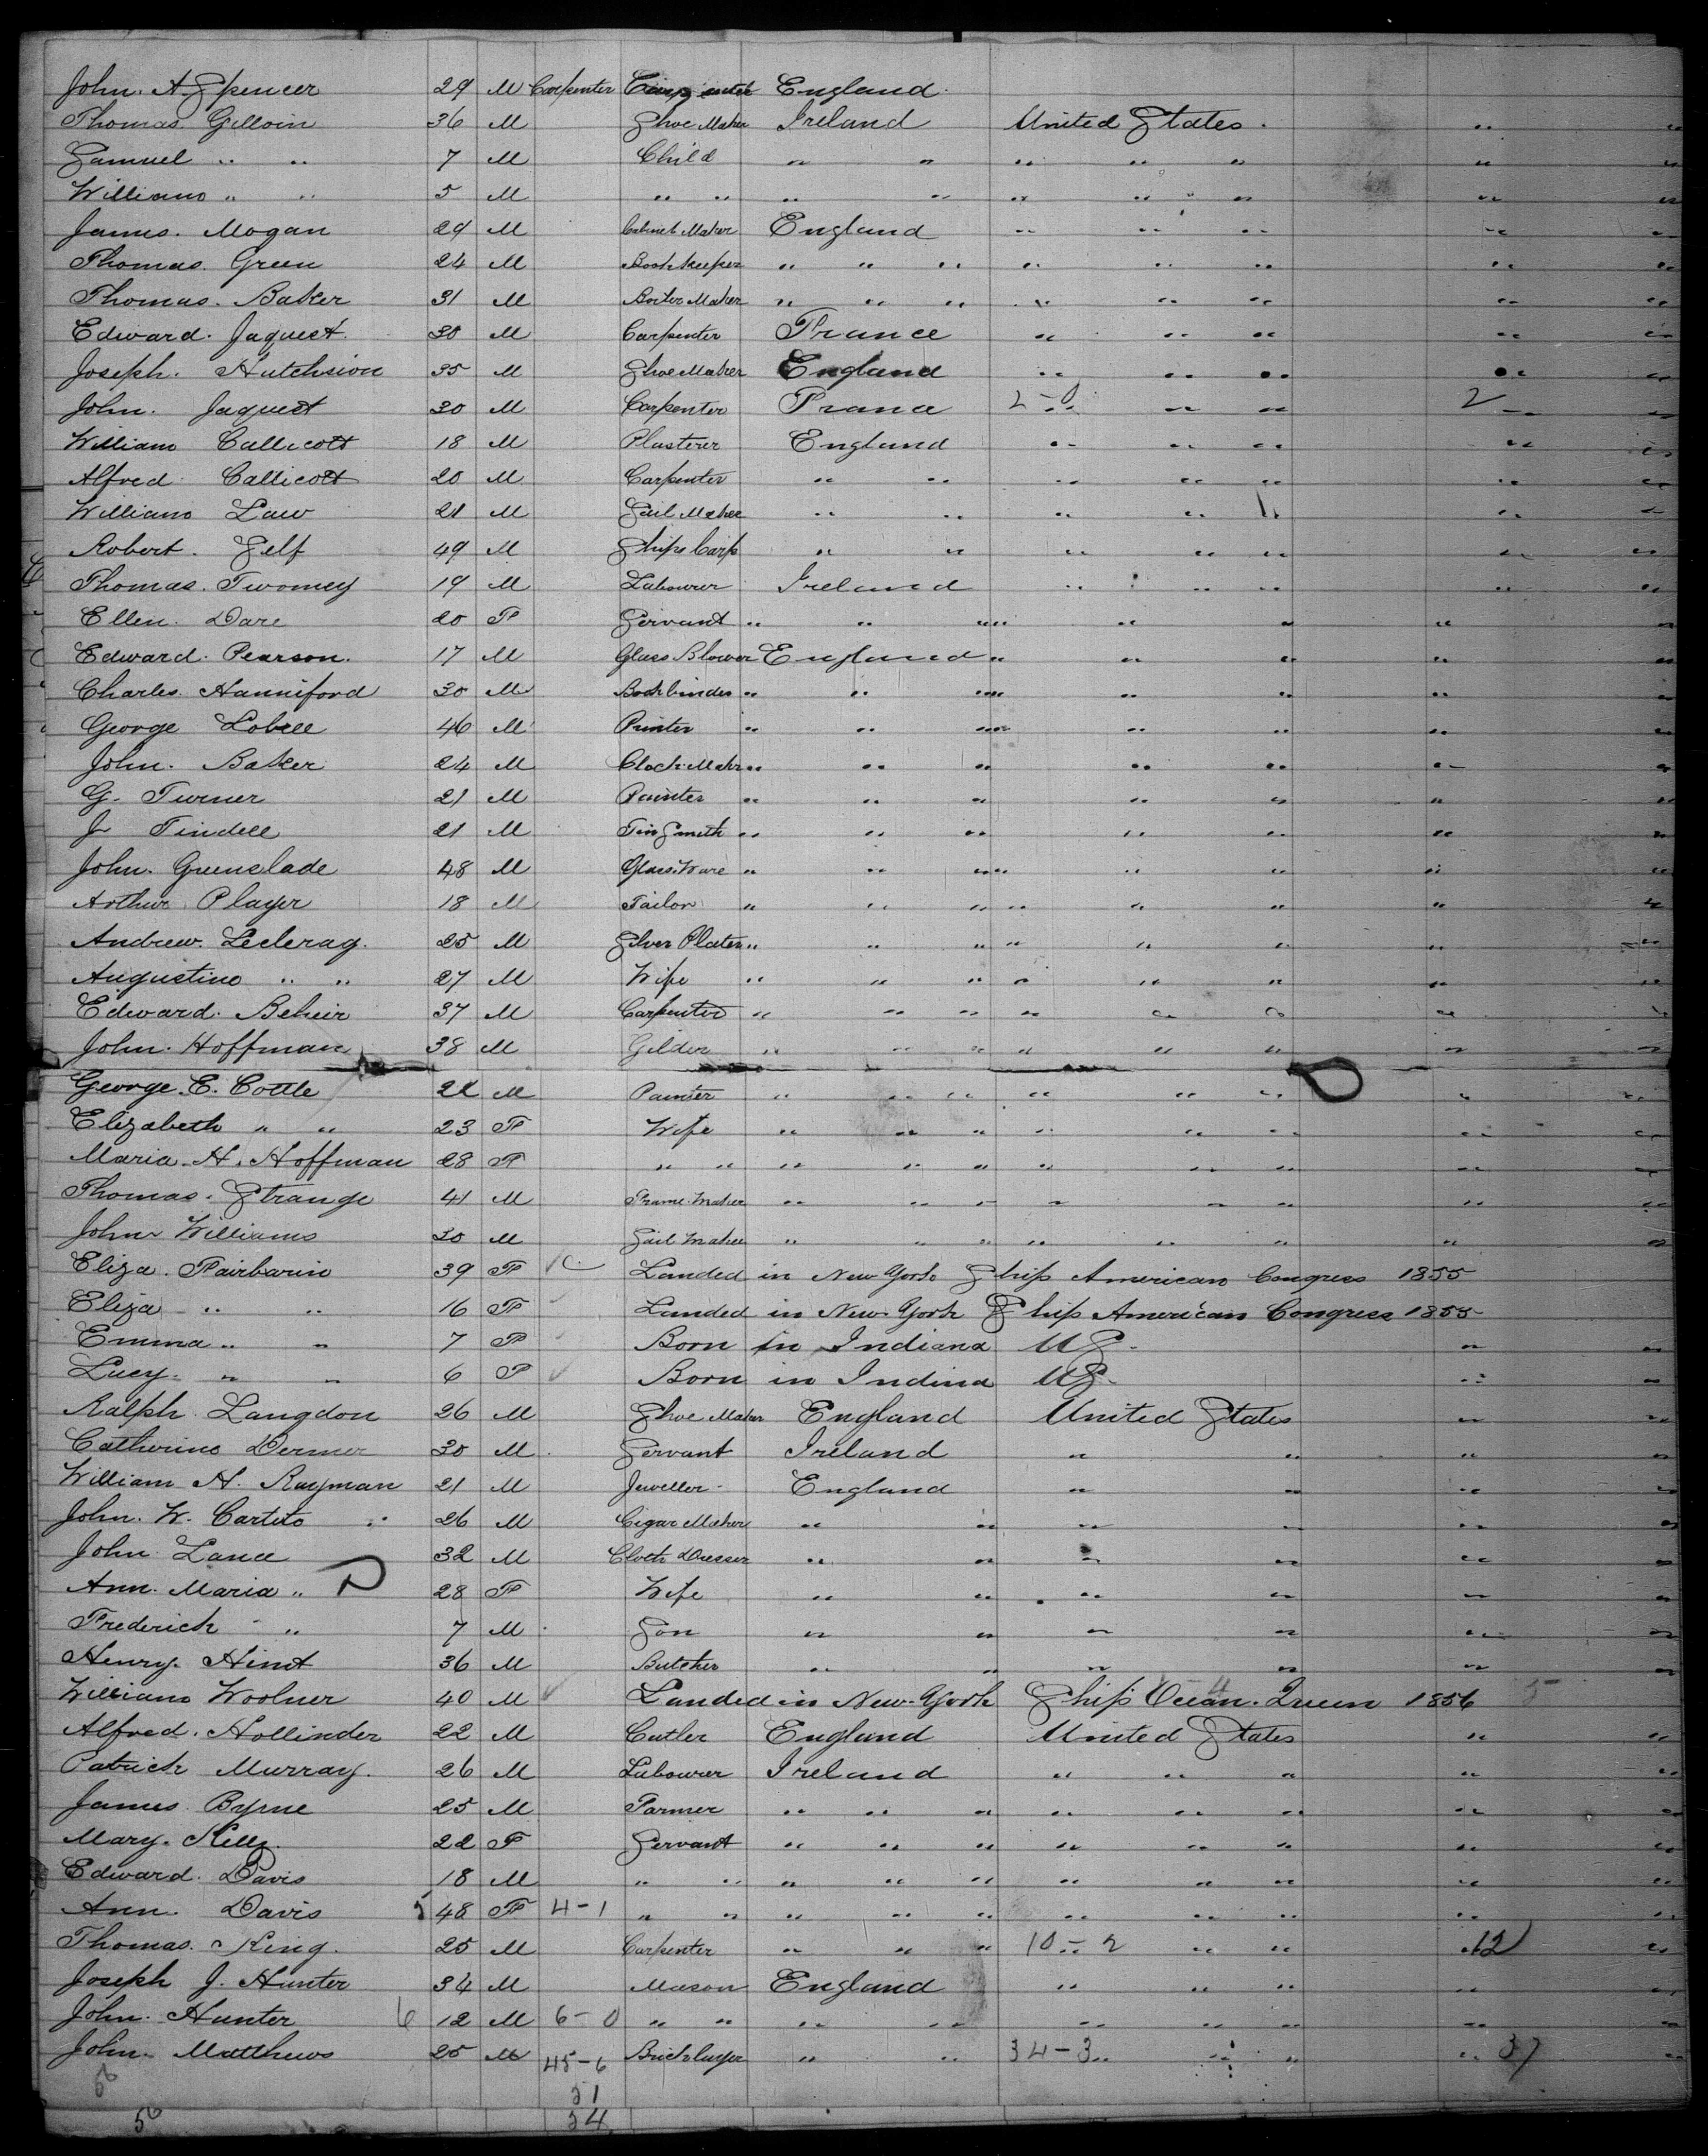 John. A. Spencer 29 M Carpenter Carpenter England.
Thomas. Gilloin 36 M Shoe Maker Ireland United States. " "
Samuel " " 7 M Child " " " " " " "
William " " 5 M " " " " " " " " "
James. Mogan 29 M Cabinet Maker England " " " " "
Thomas. Green 24 M Book keeper " " " " " " " "
Thomas. Baker 31 M Boiler Maker " " " " " " " "
Edward. Jaquest. 30 M Carpenter France " " " " "
Joseph. Hutchsion 35 M Shoe Maker England " " " " "
John. Jaquest 30 M Carpenter France 2-0 " " " 2 " "
William Callicott 18 M Plasterer England " " " " "
Alfred Callicott 20 M Carpenter " " " " " " "
William Law 21 M Sail Maker " " " " " " "
Robert. Self 49 M Ships Carp " " " " " " "
Thomas. Twomey 19 M Labourer Ireland " " " " "
Ellen. Dare 20 F Servant " " " " " " " "
Edward. Pearson. 17 M Glass Blower England " " " " "
Charles. Hanniford 30 M Bookbinder " " " " " " " "
George Lobell 46 M Printer " " " " " " " "
John. Baker 24 M Clock Maker " " " " " " "
G. Turner 21 M Painter " " " " " " "
J Tindell 21 M Tin Smith " " " " " " "
John. Greenslade 48 M Glass Ware " " " " " " " "
Arthur Player 18 M Tailor " " " " " " " "
Andrew. Leclerag. 25 M Silver Plater " " " " " " " "
Augustine " " 27 M Wife " " " " " " " "
Edward. Beheir 37 M Carpenter " " " " " " " "
John. Hoffman 38 M Gilder " " " " " " " "
George. E. Cottle 22 M Painter " " " " " " " "
Elizabeth " " 23 F Wife " " " " " " " "
Maria. H. Hoffman 28 F " " " " " " " " " "
Thomas. Strange 41 M Frame Maker " " " " " " " "
John Williams 30 M Sail Maker " " " " " " " "
Eliza. Fairbarin 39 F Landed in New York Ship American Congress 1855
Eliza " " 16 F Landed in New York Ship American Congress 1855
Emma " " 7 F Born in Indiana US. " "
Lucy. " " 6 F Born in Indina US. " "
Ralph Langdon 26 M Shoe Maker England United States " "
Catherine Dermer 30 M Servant Ireland " " " "
William H. Rayman 21 M Jeweller. England " " " "
John. W. Carteto 26 M Cigar Maker " " " " " "
John Lance 32 M Cloth Dresser " " " " " "
Ann. Maria " 28 F Wife " " " " " "
Frederick " " 7 M Son " " " " " "
Henry. Hint 36 M Butcher " " " " " "
William Woolner 40 M Landed in New York Ship Ocean. Queen 1856
Alfred. Hollinder 22 M Cutler England United States " "
Patrick Murray. 26 M Labourer Ireland " " " " "
James. Byrne 25 M Farmer " " " " " " " "
Mary. Kelly. 22 F Servant " " " " " " " "
Edward. Davis 18 M " " " " " " " " " "
Ann. Davis 5 48 F 4-1 " " " " " " " " " "
Thomas. King. 25 M Carpenter " " " 10-2 " " 12 "
Joseph J. Hunter 34 M Mason England " " " " "
John. Hunter 6 12 M 6-0 " " " " " " " " "
John. Matthews 25 M 45-6 Bricklayer " " 34-3 " " " 37 "
56 51
56 54